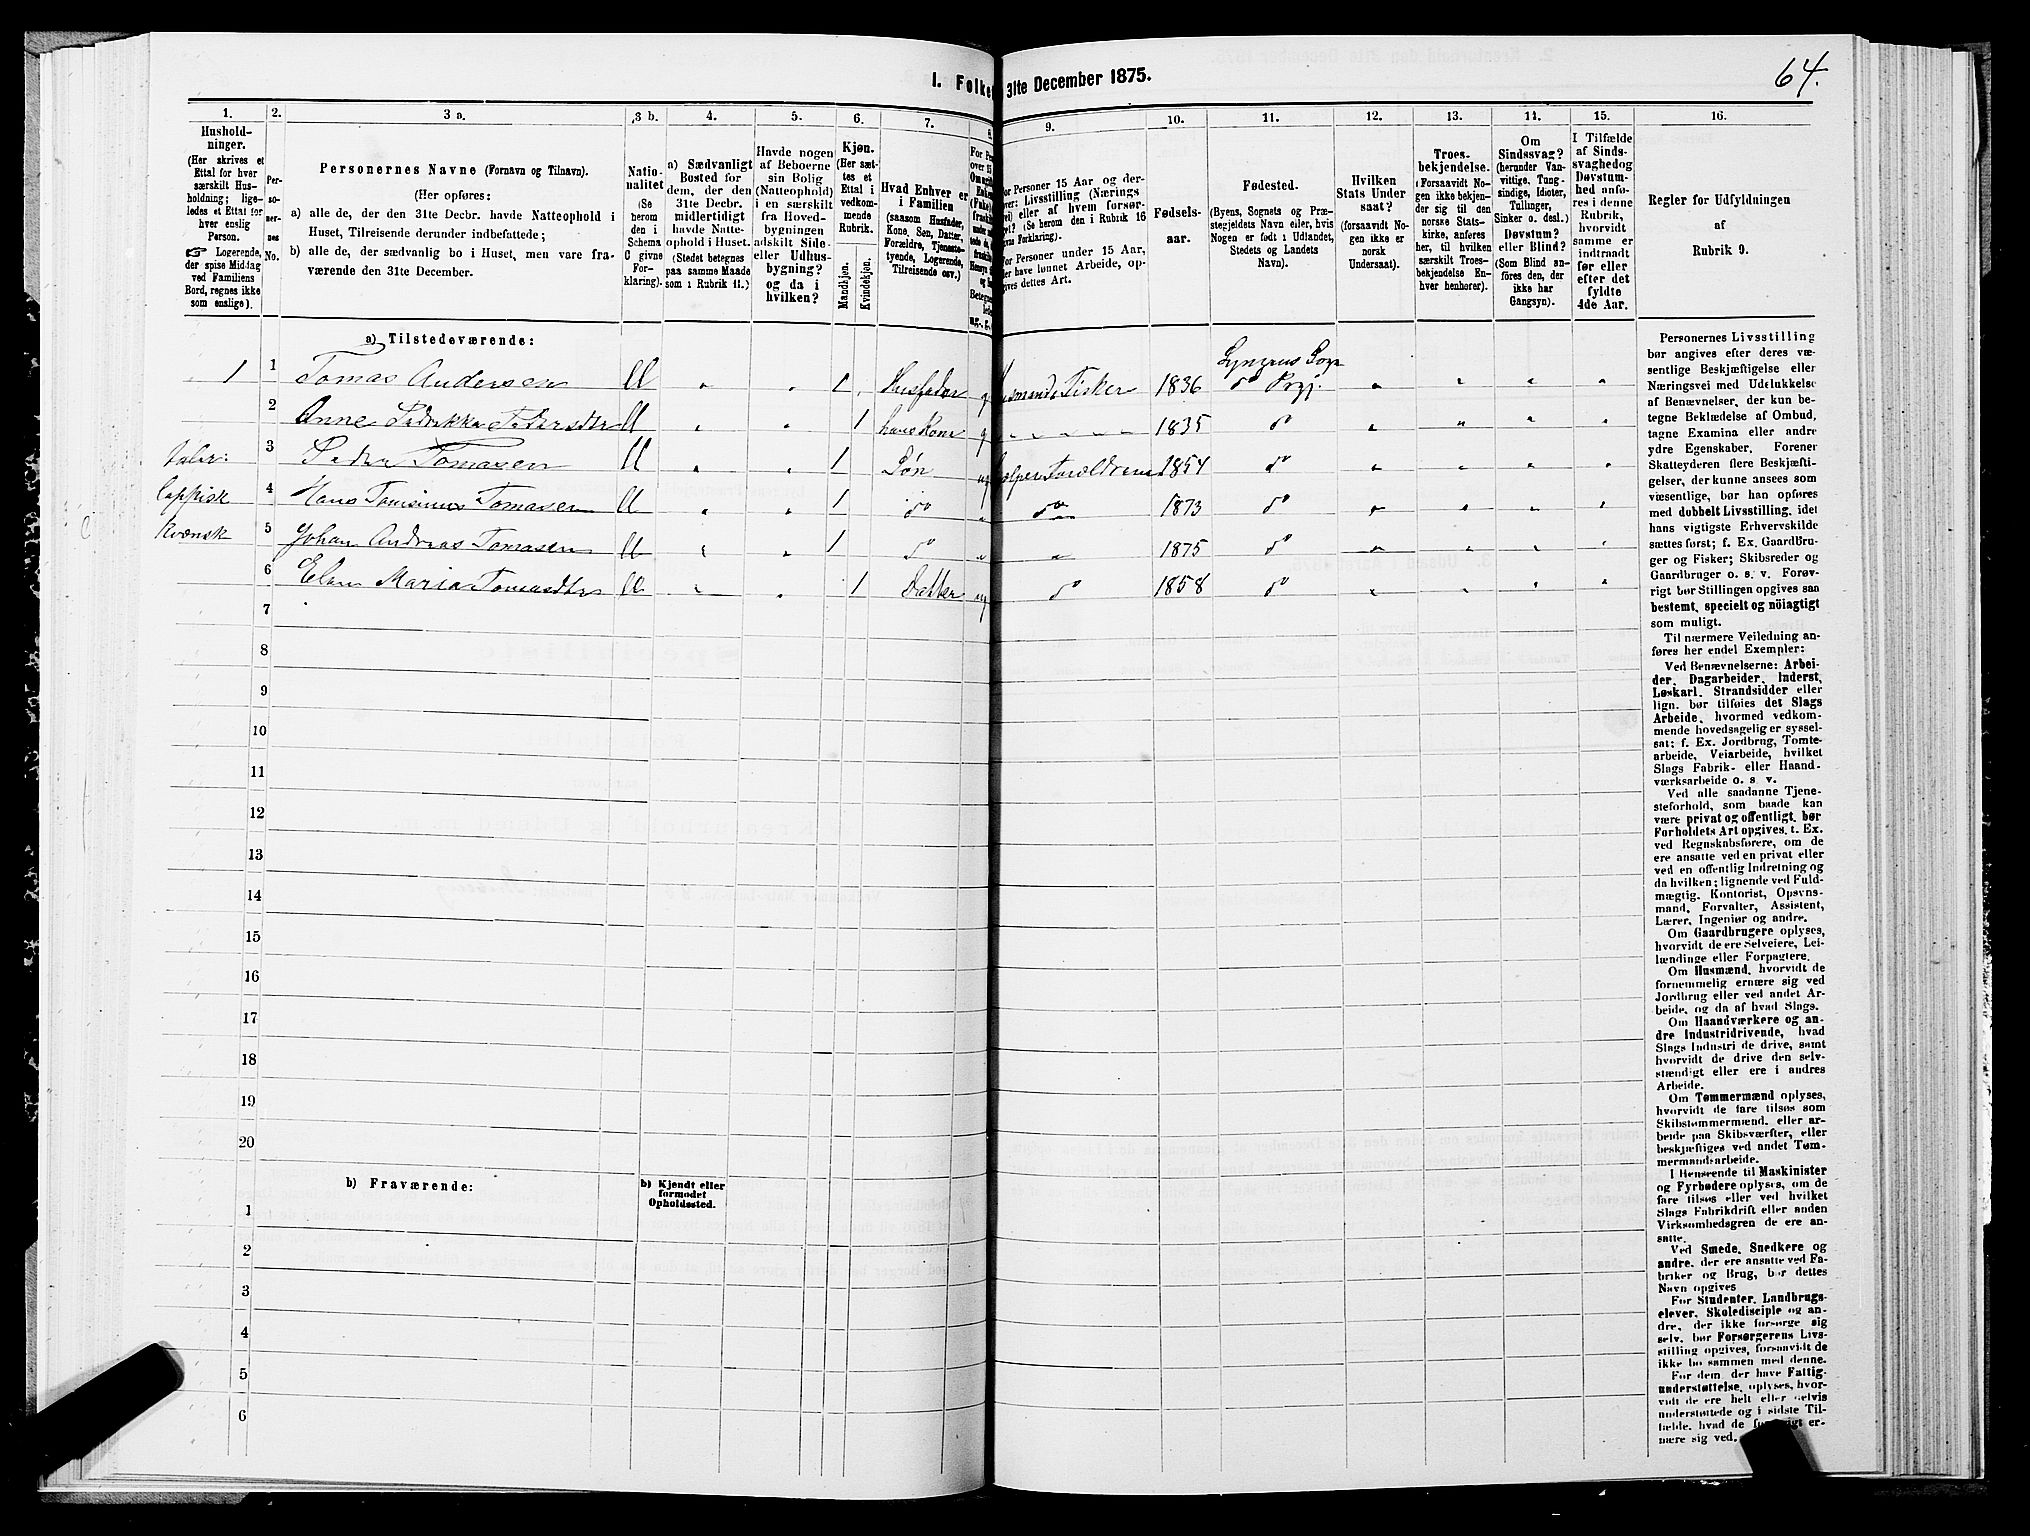 64.
1. Folke
31te December 1875.
1.
Hushold-
ninger.
(Her skrives et
Ettal for hver
særskilt Hus-
holdning; lige-
ledes et Ettal for
hver enslig
Person.
☞ Logerende,
der spise Middag
ved Familiens
Bord, regnes ikke
som enslige).
2.
Per-
so-
ner-
nes
No.
3 a.
Personernes Navne (Fornavn og Tilnavn).
(Her opføres:
a) alle de, der den 31te Decbr. havde Natteophold i
Huset, Tilreisende derunder indbefattede;
b) alle de, der sædvanlig bo i Huset, men vare fra-
værende den 31te December.
3 b.
Natio-
nalitet
(Se
herom
den i
Schema
C givne
For-
klaring).
4.
a) Sædvanligt
Bosted for
dem, der den
31te Decbr.
midlertidigt
havde Natte-
ophold i Huset.
(Stedet betegnes
paa samme Maade
som i Rubrik 11.)
5.
Havde nogen
af Beboerne
sin Bolig
(Natteophold)
i en særskilt
fra Hoved-
bygningen
adskilt Side-
eller Udhus-
bygning?
og da i
hvilken?
6.
Kjøn.
(Her sæt-
tes et
Ettal i
vedkom-
mende
Rubrik.
Mandkjøn.
Kvindekjøn.
7.
Hvad Enhver er
i Familien
(saasom Husfader,
Kone, Søn, Datter,
Forældre, Tjeneste-
tyende, Logerende,
Tilreisende osv.)
8.
9.
For Personer 15 Aar og der-
over: Livsstilling (Nærings
vei) eller af hvem forsør-
get? (Se herom den i Rubrik 16
givne Forklaring).
For Personer under 15 Aar,
der have lønnet Arbeide, op-
gives dettes Art.
10.
Fødsels-
aar.
11.
Fødested.
(Byens, Sognets og Præ-
stegjeldets Navn eller, hvis
Nogen er født i Udlandet,
Stedets og Landets
Navn).
12.
Hvilken
Stats Under
saat?
(forsaavidt No-
gen ikke er
norsk
Undersaat).
13.
Troes-
bekjendelse.
(Forsaavidt No-
gen ikke bekjen-
der sig til den
norske Stats-
kirke, anføres
her, til hvilken
særskilt Troes-
bekjendelse En-
hver henhører).
14.
Om
Sindssvag?
(herunder Van-
vittige, Tung-
sindige, Idioter,
Tullinger,
Sinker o. desl.)
Døvstum?
eller Blind?
(Som Blind an-
føres den, der
ikke har
Gangsyn).
15.
I Tilfælde
af Sinds-
svaghedog
Døvstum-
hed anfø-
res i denne
Rubrik,
hvorvidt
samme er
indtraadt
før eller
efter det
fyldte
4de Aar.
16.
Regler for Udfyldningen
af
Rubrik 9.
a) Tilstedeværende:
1 1 Tomas Andersen 1 Husfader g Husmand Fisker 1836 Lyngens Sogn
do Prgj.
2 Anne 1 hans Kone g 1835 do
talr: 3 Tomasen 1 Søn ug hjelper Foreldrene 1854 do
Lappisk 4 Hans Tomasen 1 do do 1873 do
Kvænsk 5 Johan Andreas Tomasen 1 do 1875 do
6 Elen Maria Tomasdtr 1 Datter ug do 1858 do
7
8
9
10
11
12
13
14
15
16
17
18
19
20
b) Fraværende:
b) Kjendt eller
formodet
Opholdssted.
1
2
3
4
5
6
Personernes Livsstilling
bør angives efter deres væ-
sentlige Beskjæftigelse eller
Næringsvei med Udelukkelse
af Benævnelser, der kun be-
tegne Beklædelse af Ombud,
tagne Examina eller andre
ydre Egenskaber. Forener
Skatteyderen flere Beskjæfti-
gelser, der kunne ansees som
væsentlige, bør han opføres
med dobbelt Livsstilling, idet
hans vigtigste Erhvervskilde
sættes først; f. Ex. Gaardbru-
ger og Fisker; Skibsreder og
Gaardbruger o. s. v. Forøv-
rigt bør Stillingen opgives saa
bestemt, specielt og nöiagtigt
som muligt.
Til nærmere Veiledning an-
føres her endel Exempler:
Ved Benævnelserne: Arbei-
der, Dagarbeider, Inderst,
Løskarl, Strandsidder eller
lign. bør tilføies det Slags
Arbeide, hvormed vedkom-
mende hovedsagelig er syssel-
sat; f. Ex. Jordbrug, Tomte-
arbeide, Veiarbeide, hvilket
Slags Fabrik- eller Haand-
værksarbeide o. s. v.
Ved alle saadanne Tjene-
steforhold, som baade kan
være privat og offentligt, bør
Forholdets Art opgives, t. Ex.
ved Regnskabsførere, om de
ere ansatte ved en privat eller
ved en offentlig Indretning og
da hvilken; lignende ved Fuld-
mægtig, Kontorist, Opsyns-
mand, Forvalter, Assistent,
Lærer, Ingeniør og andre.
Om Gaardbrugere oplyses,
hvorvidt de ere Selveiere, Lei-
lændinge eller Forpagtere.
Om Husmænd, hvorvidt de
fornemmelig ernære sig ved
Jordbrug eller ved andet Ar-
beide, og da af hvad Slags.
Om Haandværkere og an-
dre Industridrivende, hvad
Slags Industri de drive, samt
hvorvidt de drive den selv-
stændigt eller ere i andres
Arbeide.
Om Tømmermænd oplyses,
hvorvidt de fare tilsøs som
Skibstømmermænd, eller ar-
beide paa Skibsværfter, eller
beskjæftiges ved andet Tøm-
mermandsarbeide.
I Henseende til Maskinister
og Fyrbødere oplyses, om de
fare tilsøs eller ved hvilket
Slags Fabrikdrift eller anden
Virksomhedsgren de ere an-
satte.
Ved Smede, Snedkere og
andre, der ere ansatte ved Fa-
briker og Brug, bør dettes
Navn opgives
For Studenter, Landbrugs-
elever, Skoledisciple og an-
dre, der ikke forsørge sig
selv, bør Forsørgerens Livs-
stilling opgives, forsaavidt de
ikke bo sammen med denne.
For dem, der have Fattig-
understøttelse, oplyses, hvor-
vidt de ere helt eller delvis
understøttede og i sidste Til-
fælde, hvad de forøvrigt er-
nære sig ved.